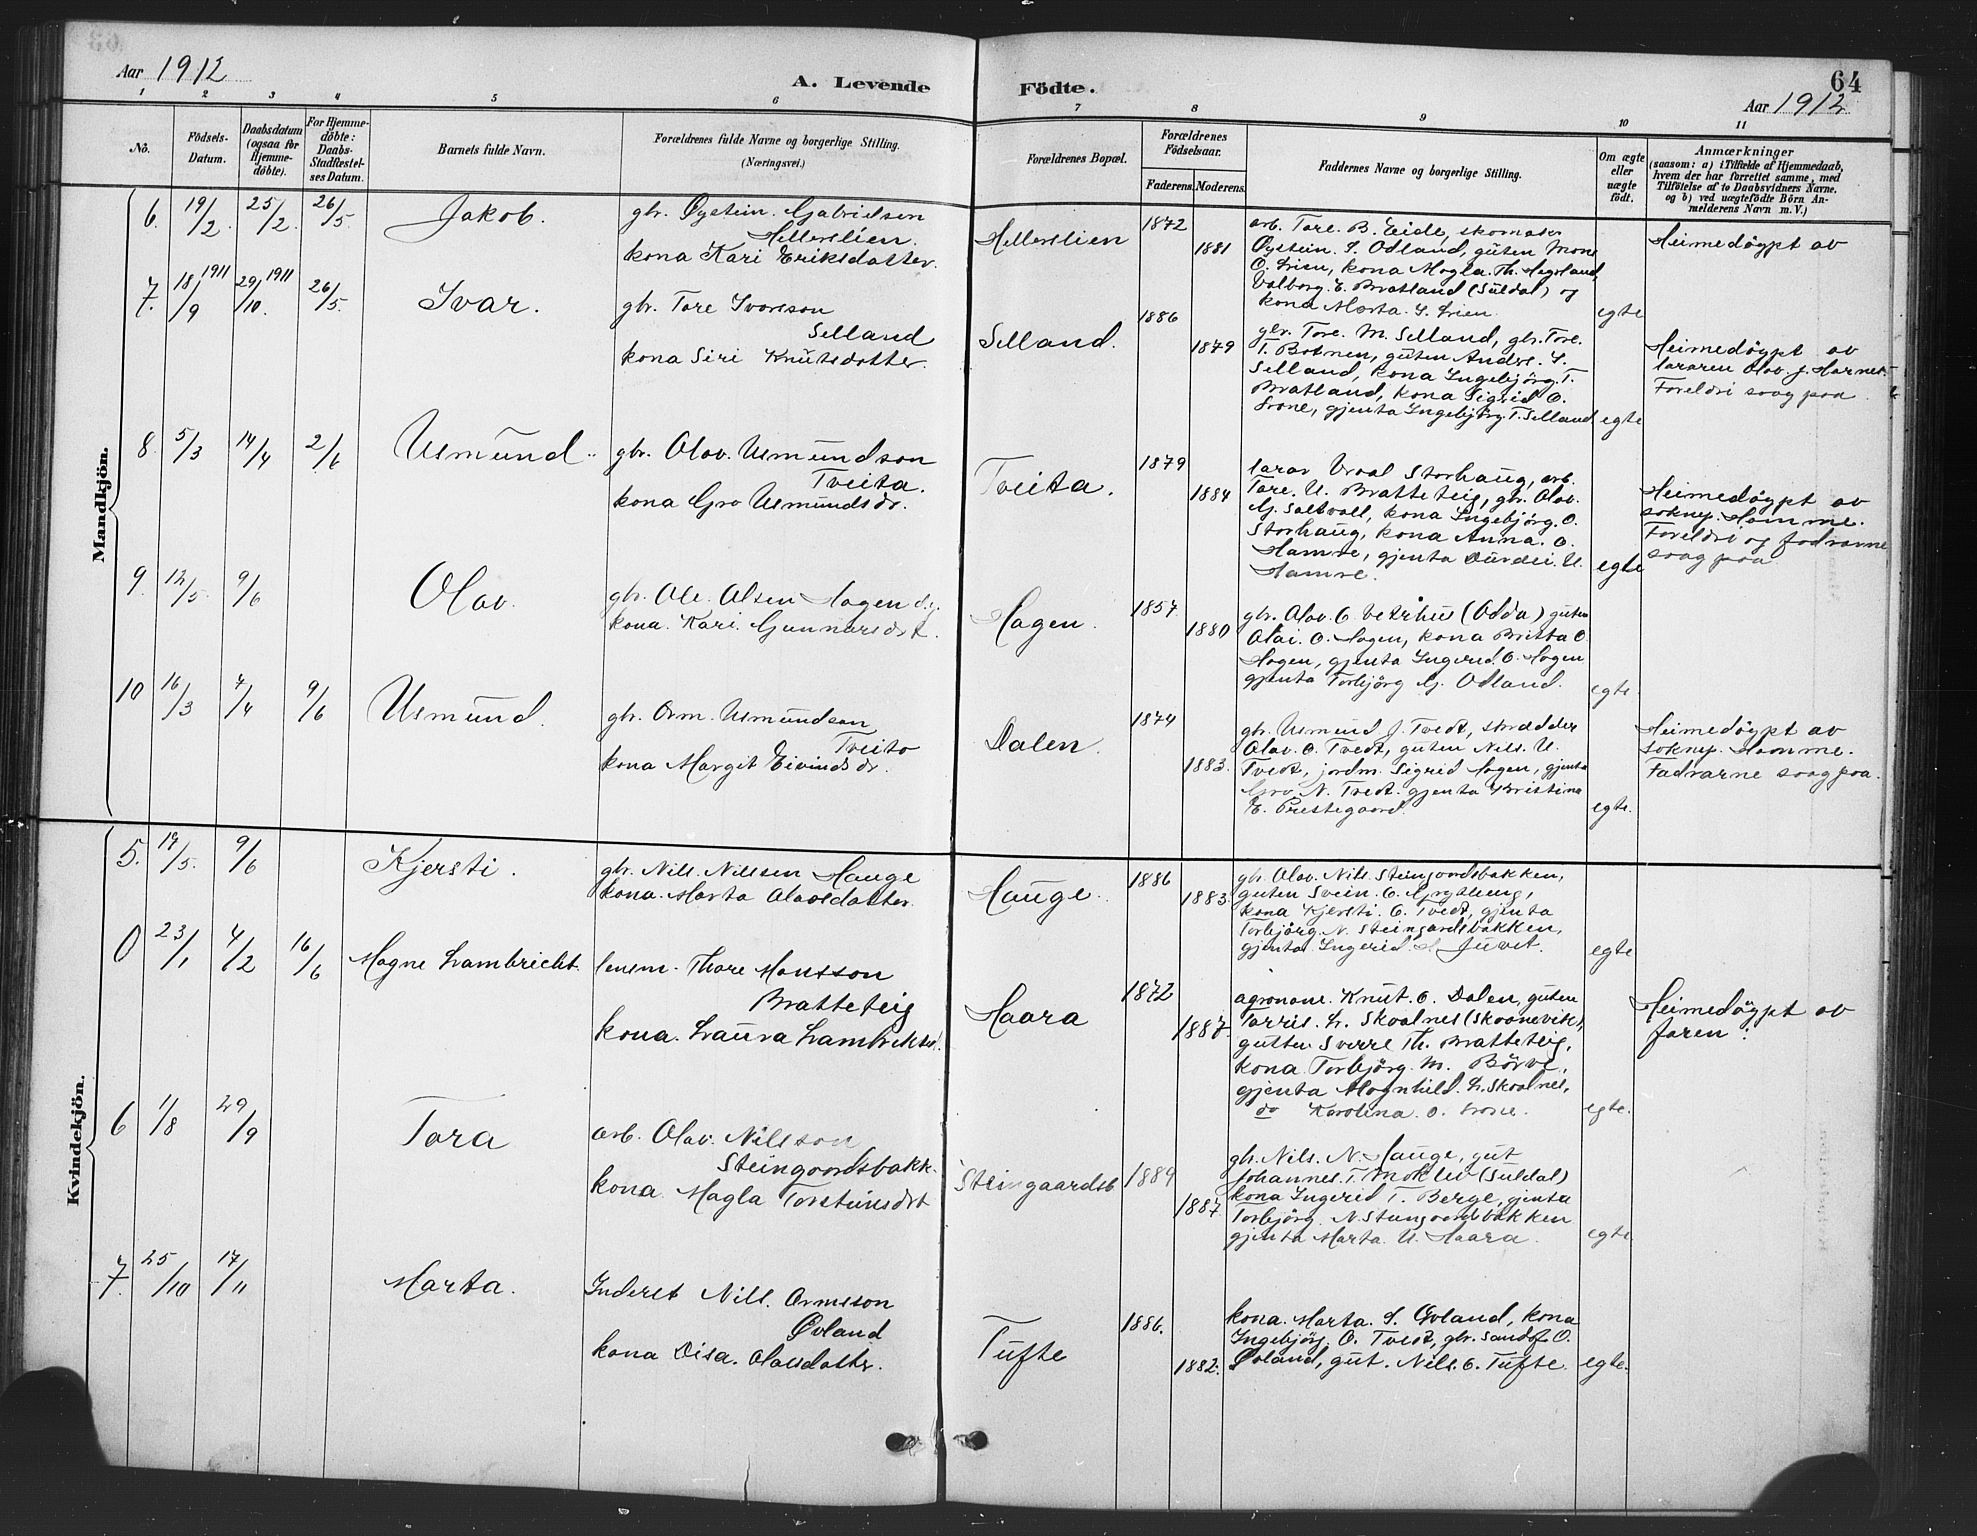 Aar 1912
A. Levende Födte.
64
Aar 1912
1 2 3 4 5 6 7 8 9 10 11
No.
Födsels-Datum.
Daabsdatum (ogsaa for Hjemmedöbte).
For Hjemmedöbte: Daabs-Stadfæstelses Datum.
Barnets fulde Navn.
Forældrenes fulde Navne og borgerlige Stilling.
(Næringsvei.)
Forældrenes Bopæl.
Forældrenes Födselsaar.
Faderens. Moderens.
Faddernes Navne og borgerlige Stilling.
Om ægte eller uægte födt.
Anmærkninger
(saasom: a) i Tilfælde af Hjemmedaab,
hvem der har forrettet samme, med
Tilföielse af to Daabsvidners Navne.
og b) ved uægtefödte Börn An-
melderens Navn m. V.)
Mandkjön.
6. 19/2 25/2 26/5 Jakob.
gbr. Øystein. Gabrielsen
Hellerslien.
kona Kari Eriksdatter.
Hellerslien
1872
1881
arb. Tore. B. Eide, skomaker
Øystein. S. Odland, guten Mons
O. Lien, kona Magla. Th. Hegeland,
Valborg. E. Bratland (Suldal) og
kona Marta. S. Lien
egte
Heimedøypt av
7. 18/9 1911 29/10 1911 26/5 Ivar.
gbr. Tore Ivarsson
Selland
kona Siri Knutsdotter.
Selland.
1886
1879
gbr. Tore. M. Selland, gbr. Tore.
T. Botnen, guten Andre. S.
Selland, kona Ingebjörg. T.
Bratland, kona Sigrid O.
Lione, gjenta Ingebjörg. T. Selland
egte
Heimedöypt av
læraren Olav. J. Hamre.
Foreldri saag paa.
8. 5/3 14/4 2/6 Asmund.
gbr. Olav. Asmundson
Tveita.
kona Gro Asmundsdr.
Tveita.
1879
1884
lærar Vraal Storhaug, arb.
Tore. A. Bratteteig, gbr. Olav.
G. Saltvoll, kona Ingebjörg. O.
Storhaug, kona Anna. O.
Hamre, gjenta Durdei. A.
Hamre.
egte
Heimedöypt av
soknep. Hamme.
Foreldri og fadrarne
saag paa
9. 12/5 9/6 Olav.
gbr. Ole. Olsen Hagen og
kona. Kari. Gunnarsdt.
Hagen.
1857
1880
gbr. Olav. O. Vetrhus (Odda) guten
Olai. O. Hagen, kona Britta O.
Hagen, gjenta Ingerid. O. Hagen
gjenta Torbjörg G. Odland.
egte.
10 16/3 7/4 9/6 Asmund.
gbr. Orm. Asmundson
Tveito
kona Margit Eivindsdr.
Dalen.
1874
1883.
gbr. Asmund J. Tvedt, skrædder
Olav. O. Tvedt, guten Nils. A.
Tvedt, jordm. Sigrid Hagen, gjenta
Gro. N. Tvedt. gjenta Kristina
E. Prestegaard.
egte.
Heimedöypt av
soknep. Hamme.
Fadrarne saag paa.
Kvindekjön.
5. 19/5. 9/6 Kjersti.
gbr. Nils. Nilssen Hauge
kona. Marta Olavsdatter.
Hauge.
1886
1883.
gbr. Olav. Nils. Steingardsbakken,
guten Svein. O.
kona Kjersti. O. Tvedt, gjenta
Torbjörg. N. Steingardsbakken,
gjenta. Ingerid Juvet.
egte
0 23/1 4/2 16/6 Magne Lambricht.
lensm. Thore Monsson
Bratteteig
kona. Laura Lambriktsd.
Haara
1872
1887.
agronom. Knut. O. Dalen, guten
Torris. L. Skoalnes (Skoanevik),
gutten Sverre Th. Bratteteig,
kona Torbjörg. M. Börve,
gjenta Magnhild. L. Skoalnes,
do Karolina. O. Lione.
egte.
Heimedöypt av
faren.
6 1/8 29/9 Tora
arb. Olav. Nilsson
Steingoordsbakk.
kona Magla Torsteinsdt
Steingaardsb
1889
1887.
gbr. Nils. N. Hauge, gut
Johannes. T. Moklev (Suldal)
kona Ingerid T. Berge, gjenta
Torbjörg. N. Steingoordsbakken
gjenta Marta. A. Haara.
egte.
7. 25/10 17/11 Marta.
Inderst Nils. Ormsson
Øvland
kona Disa. Olavsdatter.
Tufte
1886.
1882.
kona. Marta. S. Øvland, kona
Ingebjörg. O. Tvedt, gbr. Sandof O.
Øvland, gut. Nils. O. Tufte.
egte.